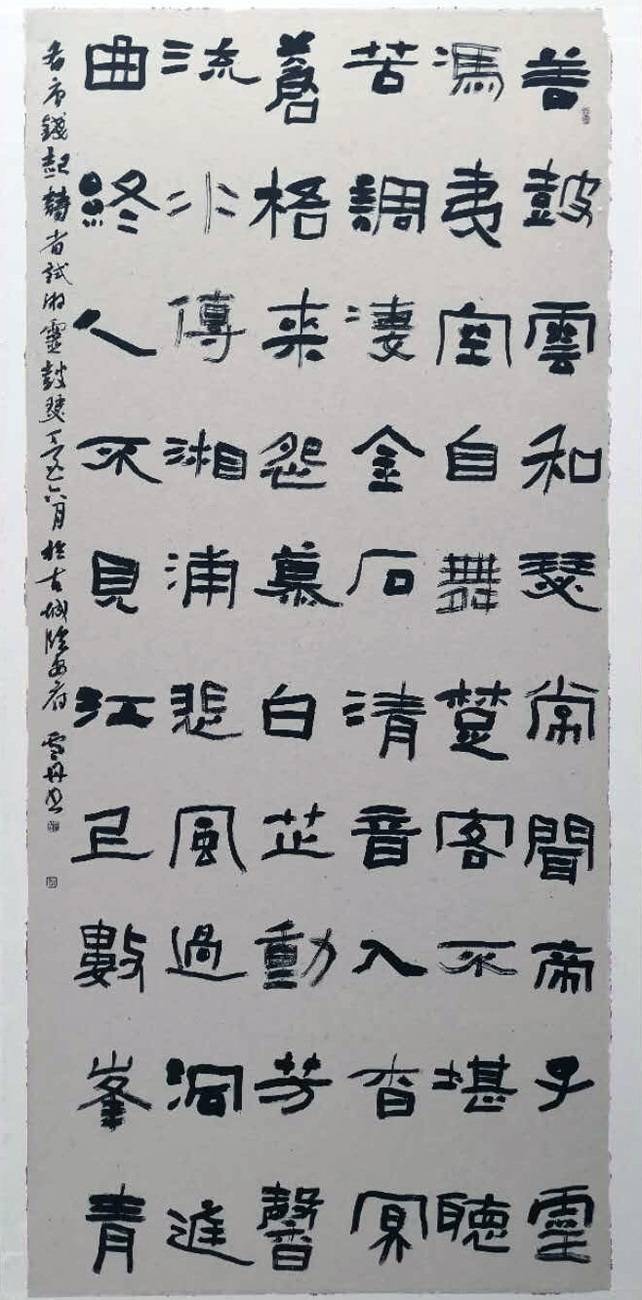 善鼓雲和瑟常聞帝子靈
馮夷空自舞楚客不堪聽
苦調淒金石清音入杳冥
蒼梧來怨慕白芷動芳馨
流水傳湘浦悲風過洞庭
曲終人不見江上數峯青
錢起詩省試湘靈鼓瑟丁酉六月於古城臨安府